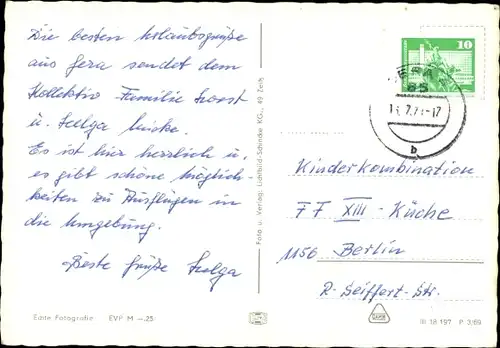 Die besten Urlaubsgrüße
aus Gera sendet dem
Kollektiv Familie Horst
u. Helga
Es ist hier herrlich u.
es gibt schöne Möglich-
keiten zu Ausflügen in
die Umgebung.
Beste Grüße Helga
Echte Fotografie EVP M —.25
Foto u. Verlag: Lichtbild-Schincke KG., 49 Zeitz
10
GERA
65
7.7 -17
b
Kinderkombination
FF XIII - Küche
1156 Berlin
R.-Seiffert-Str.
III 18 197 P 3/69